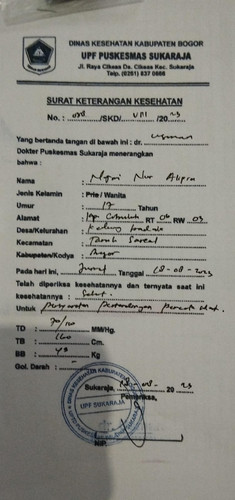 DINAS KESEHATAN KABUPATEN BOGOR
UPF PUSKESMAS SUKARAJA
Jl. Raya Cikeas Ds. Cikeas Kec. Sukaraja
Telp. (0251) 837 0668
SURAT KETERANGAN KESEHATAN
No. : /SKD/ VIII /20 23
Yang bertanda tangan di bawah ini : dr. usman
Dokter Puskesmas Sukaraja menerangkan
bahwa :
Nama : Nur
Jenis Kelamin : Pria / Wanita
Umur : 17 Tahun
Alamat : Kp. RT RW 03
Desa/Kelurahan :
Kecamatan : Tanah Sareal
Kabupaten/Kodya : Bogor
Pada hari ini, Jumat Tanggal 18-08-2023
Telah diperiksa kesehatannya dan ternyata saat ini
kesehatannya : Sehat.
Untuk Persyaratan Pertandingan Pencak silat.
TD : MM/Hg.
TB : 160 Cm.
BB : 48 Kg
Gol. Darah :
Sukaraja, 18-08- 20 23
Pemeriksa,
UPF SUKARAJA
NIP.